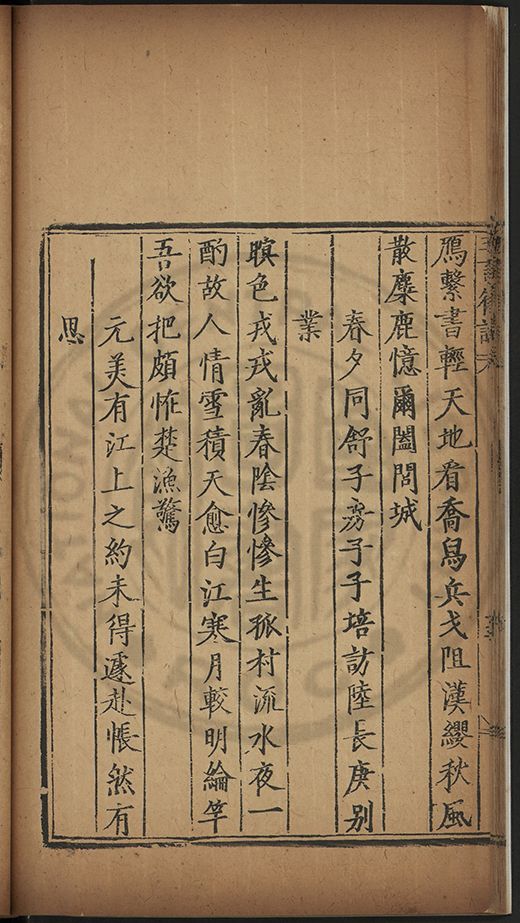 鴈繫書輕天地看喬舄兵戈阻漢纓秋風
散麋鹿憶爾闔閭城
春夕同舒子彥子子培訪陸長庚别
業
暝色戎戎亂春陰慘慘生孤村流水夜一
酌故人情雪積天愈白江寒月較明綸竿
吾欲把頗怍楚漁驚
元美有江上之約未得遽赴悵然有
思